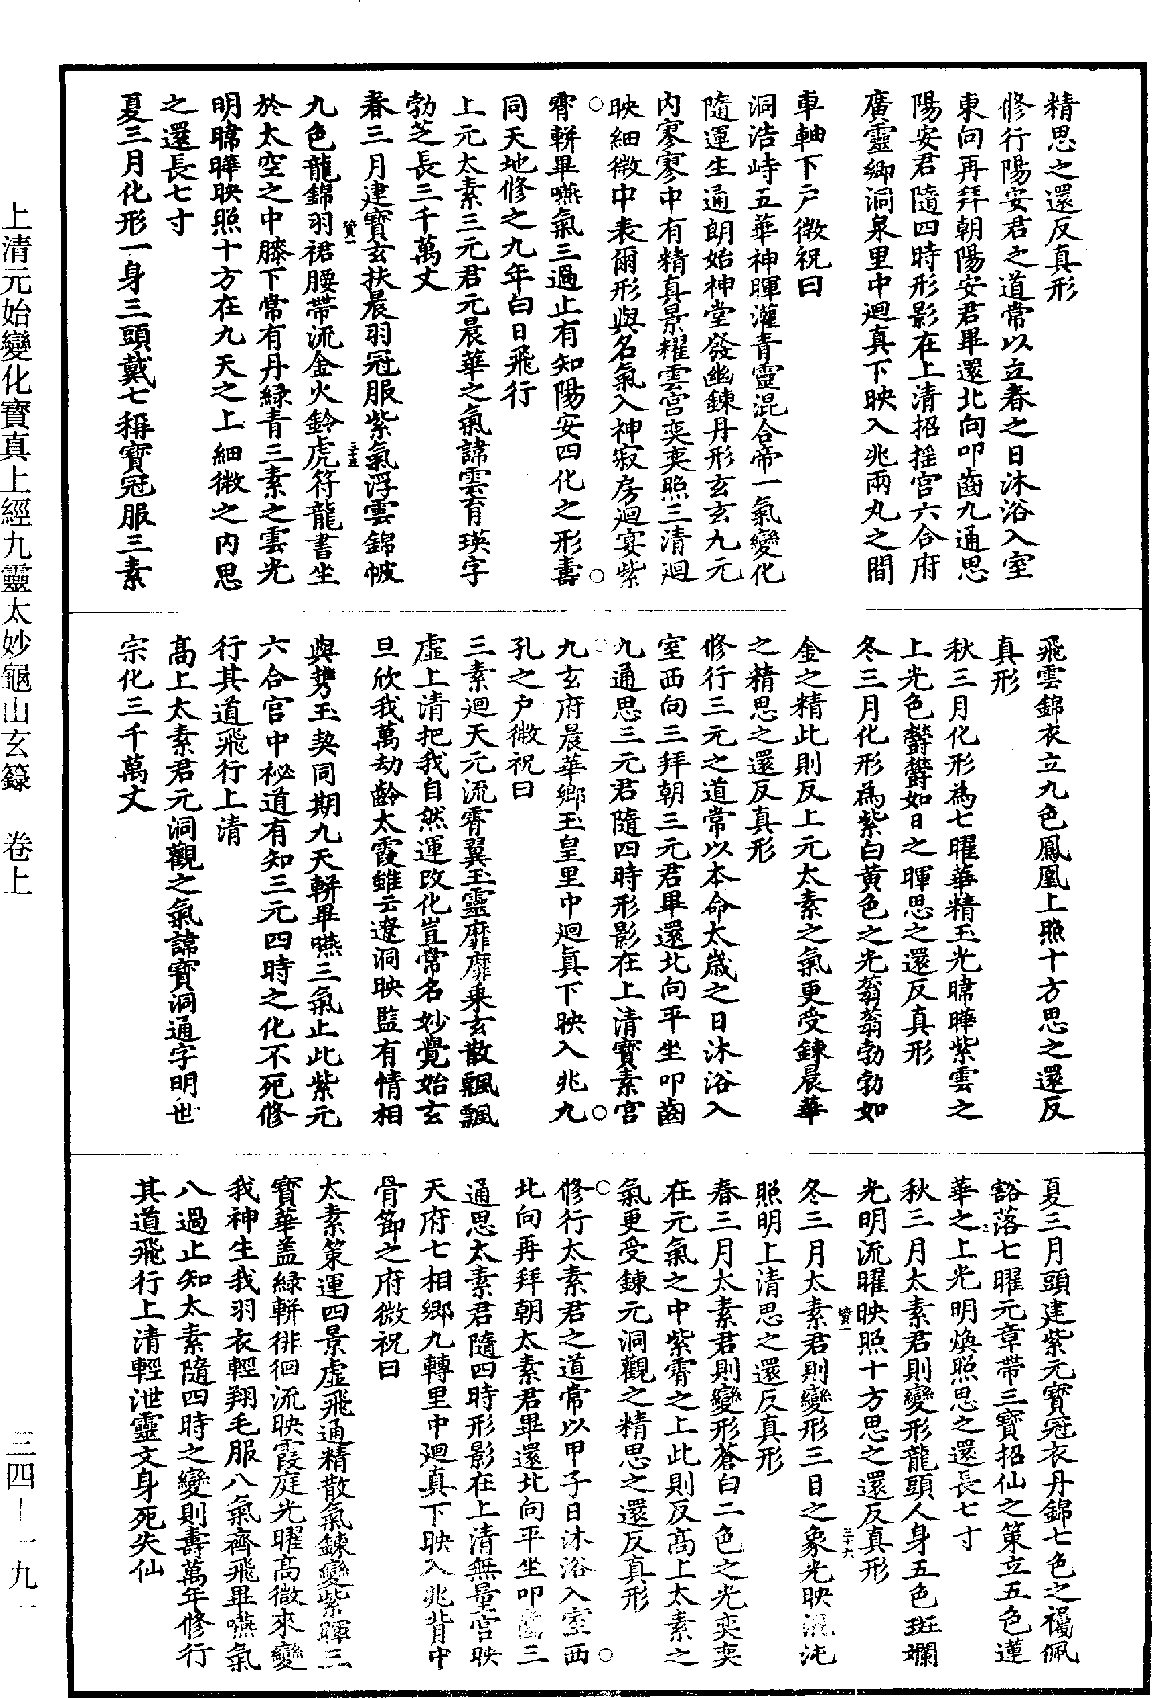 精思之還反真形
修行陽安君之道常以立春之日沐浴入室
東向再拜朝陽安君畢還北向叩齒九通思
陽安君隨四時形影在上清招搖宮六合府
廣靈鄉洞泉里中迴真下映入兆兩丸之間
車軸下户微祝曰
洞浩峙五華神暉灌青靈混合帝一氣變化
隨運生通朗始神堂發幽鍊丹形玄玄九元
内寥寥中有精真景耀雲宮奕奕照三清迴
映細微中表爾形與名氣入神寂房迴宴紫
霄軿畢嚥氣三過止有知陽安四化之形壽
同天地修之九年白日飛行
上元太素三元君元晨華之氣諱雲育瑛字
勃芝長三千萬丈
春三月建寶玄扶晨羽冠服紫氣浮雲錦帔
九色龍錦羽裙腰帶流金火鈴虎符龍書坐
於太空之中膝下常有丹綠青三素之雲光
明暐曄映照十方在九天之上細微之内思
之還長七寸
夏三月化形一身三頭戴七稱寶冠服三素
飛雲錦衣立九色鳳凰上照十方思之還反
真形
秋三月化形為七曜華精玉光暐曄紫雲之
上光色欝欝如日之暉思之還反真形
冬三月化形為紫白黄色之光蓊蓊勃勃如
金之精此則反上元太素之氣更受鍊晨華
之精思之還反真形
修行三元之道常以本命太歲之日沐浴入
室西向三拜朝三元君畢還北向平坐叩齒
九通思三元君隨四時形影在上清寶素宮
九玄府晨華鄉玉皇里中迴真下映入兆九
孔之户微祝曰
三素迴天元流霄翼玉靈靡靡乘玄散飄飄
虛上清把我自然運改化豈常名妙覺始玄
旦欣我萬劫齡太霞雖云遼洞映監有情相
與勞玉契同期九天軿畢嚥三氣止此紫元
六合宫中祕道有知三元四時之化不死修
行其道飛行上清
高上太素君元洞觀之氣諱寶洞通字明世
宗化三千萬丈
夏三月頭建紫元寶冠衣丹錦七色之襡佩
豁落七曜元章帶三寶招仙之策立五色蓮
華之上光明煥照思之還長七寸
秋三月太素君則變形龍頭人身五色斑斕
光明流曜映照十方思之還反真形
冬三月太素君則變形三日之象光映混沌
照明上清思之還反真形
春三月太素君則變形蒼白二色之光奕奕
在元氣之中紫霄之上此則反高上太素之
氣更受鍊元洞觀之精思之還反真形
修行太素君之道常以甲子日沐浴入室西
北向再拜朝太素君畢還北向平坐叩齒三
通思太素君隨四時形影在上清無量宮映
天府七相鄉九轉里中迴真下映入兆背中
骨節之府微祝曰
太素策運四景虛飛通精散氣鍊變紫暉三
寶華盖綠軿徘徊流映霞庭光曜高微來變
我神生我羽衣輕翔毛服八氣齊飛畢嚥氣
八過止知太素隨四時之變則壽萬年修行
其道飛行上清輕泄靈文身死失仙
上清元始變化寶真上經九靈太妙龜山玄籙　卷上
三四－一九一